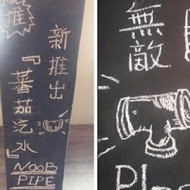 推
新推出
『蕃茄汽水』
NOOB
PIPE
無敵